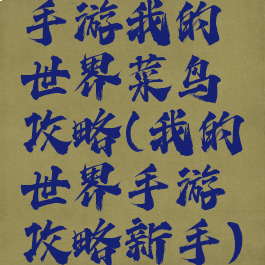 手游我的
世界菜鸟
攻略(我的
世界手游
攻略新手)